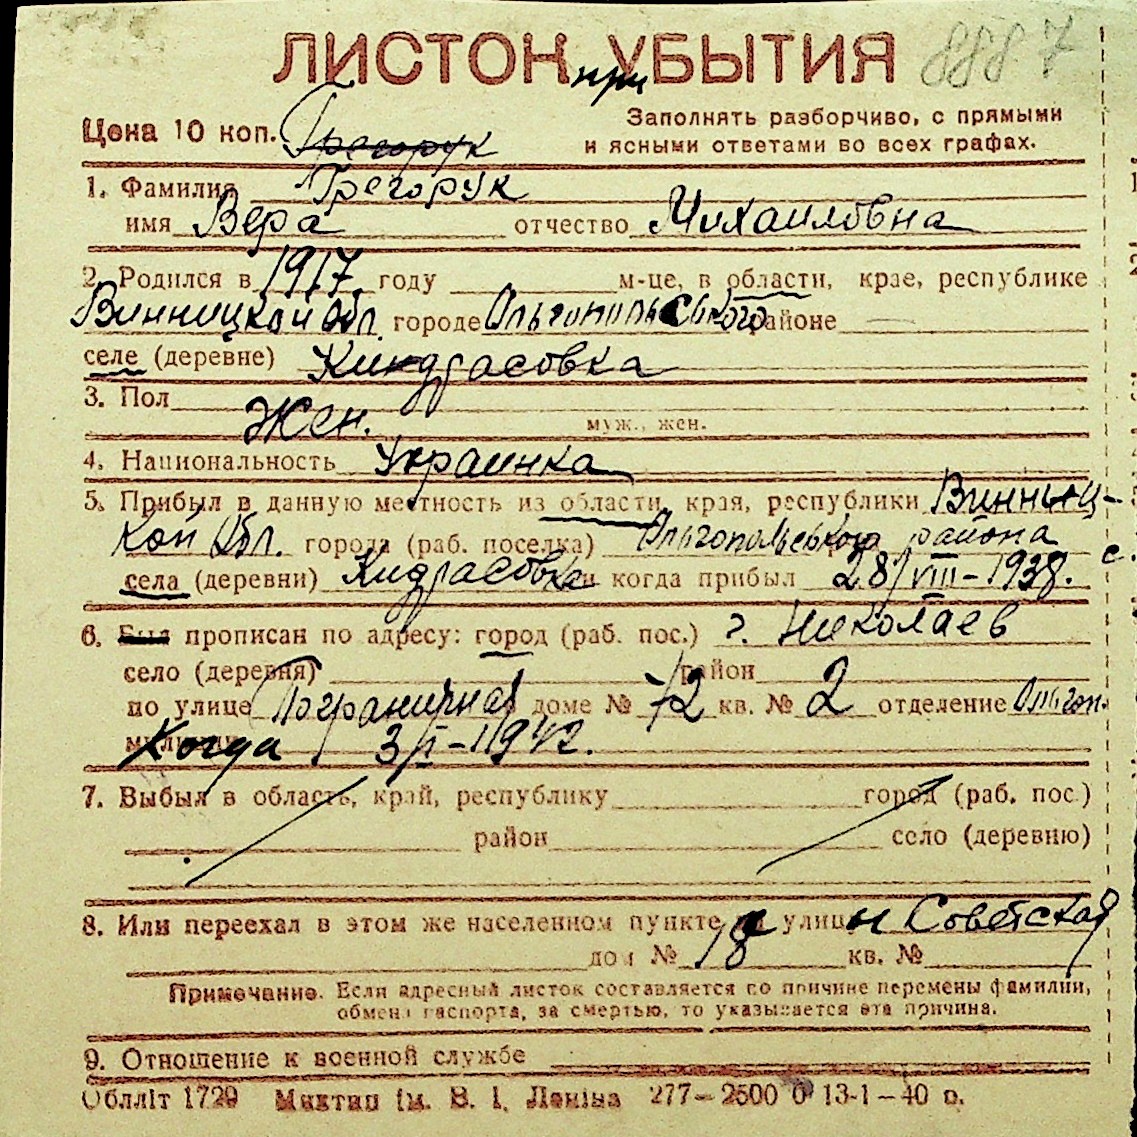 ЛИСТОК УБЫТИЯ 8887
при
Цена 10 коп. Грегорук Заполнять разборчиво, с прямыми
и ясными ответами во всех графах.
1. Фамилия Грегорук
имя Вера отчество Михайловна
2. Родился в 1917 году м-це, в области, крае, республике
Винницкой обл. городе Ольгопольського районе
селе (деревне) Киндрасовка
3. Пол Жен. муж., жен.
4. Национальность Украинка
5. Прибыл в данную местность из области, края, республики Винниц-
кой обл. города (раб. поселка) Ольгопольського района
села (деревни) Кидрасовка и когда прибыл 28/VIII-1938. с.
6. Был прописан по адресу: город (раб. пос.) г. Николаев
село (деревня) район
по улице Пограничная доме № 72 кв. № 2 отделение Ольгоп.
милиции Когда 3/I-1942.
7. Выбыл в область, край, республику город (раб. пос.)
район село (деревню)
8. Или переехал в этом же населенном пункте улицы Советская
дом № 18 кв. №
Примечание. Если адресный листок составляется по причине перемены фамилии,
обмена паспорта, за смертью, то указывается эта причина.
9. Отношение к военной службе
Облліт 1729 Миктип ім. В. І. Леніна 277—2500 0 13-1-40 р.